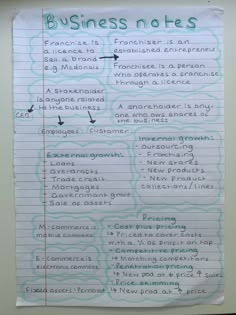 Business notes
Franchise is
a licence to
sell a brand
e.g Mcdonalds
Franchiser is an
established entrepreneur
Franchisee is a person
who operates a franchise
through a licence
A stakeholder
is anyone related
to the business
CEO
Employees
Customer
A shareholder is any-
one who owns shares of
the business
External growth:
- Loans
- Overdrafts
- Trade credit
- Mortgages
- Government grant
- Sale of assets
Internal growth:
- Outsourcing
- Franchising
- New stores
- New products
- New product
/lines
M-Commerce is
mobile commerce
E-Commerce is
electronic commerce
Fixed assets:
Pricing
- Cost plus pricing
↳ Priced to cover costs
with a % of profit on top
- Competitive pricing
↳ Matching competitors
- Penetration pricing
↳ New prod at ↓ price ↑ sales
- Price skimming
↳ New prod at ↑ price